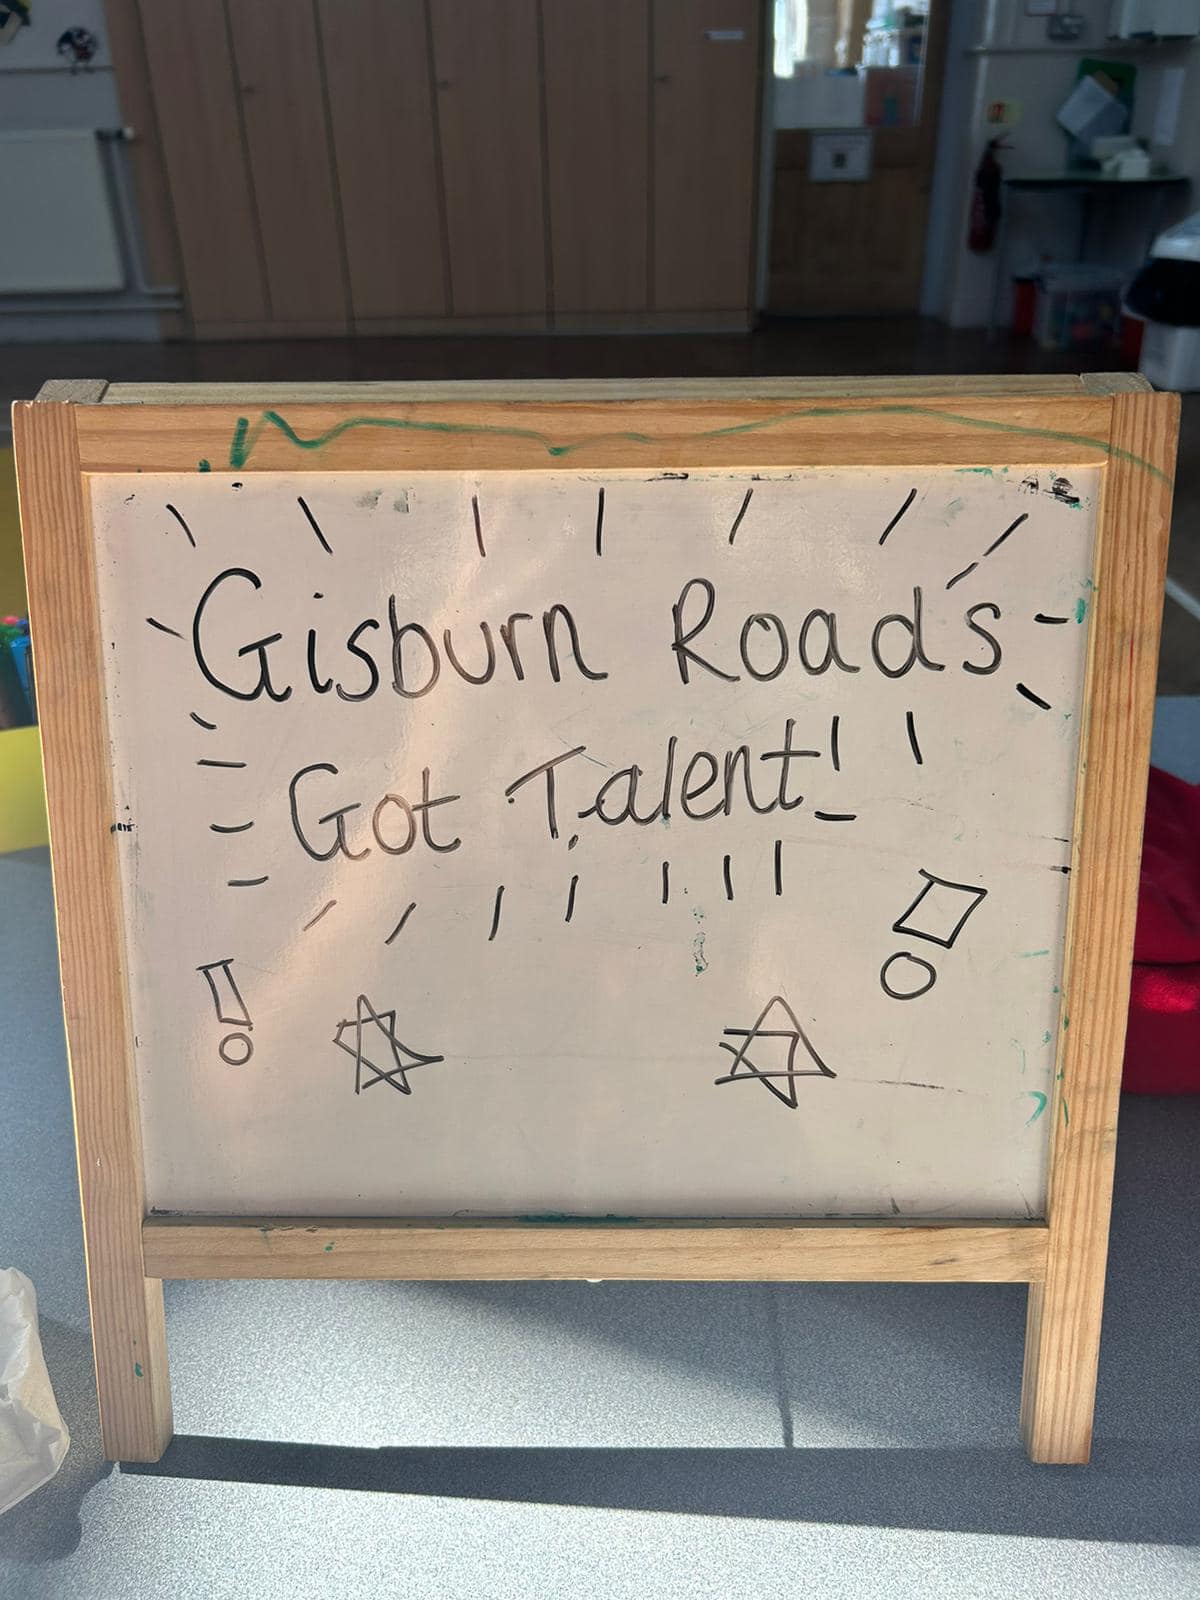 Gisburn Road's
Got Talent!